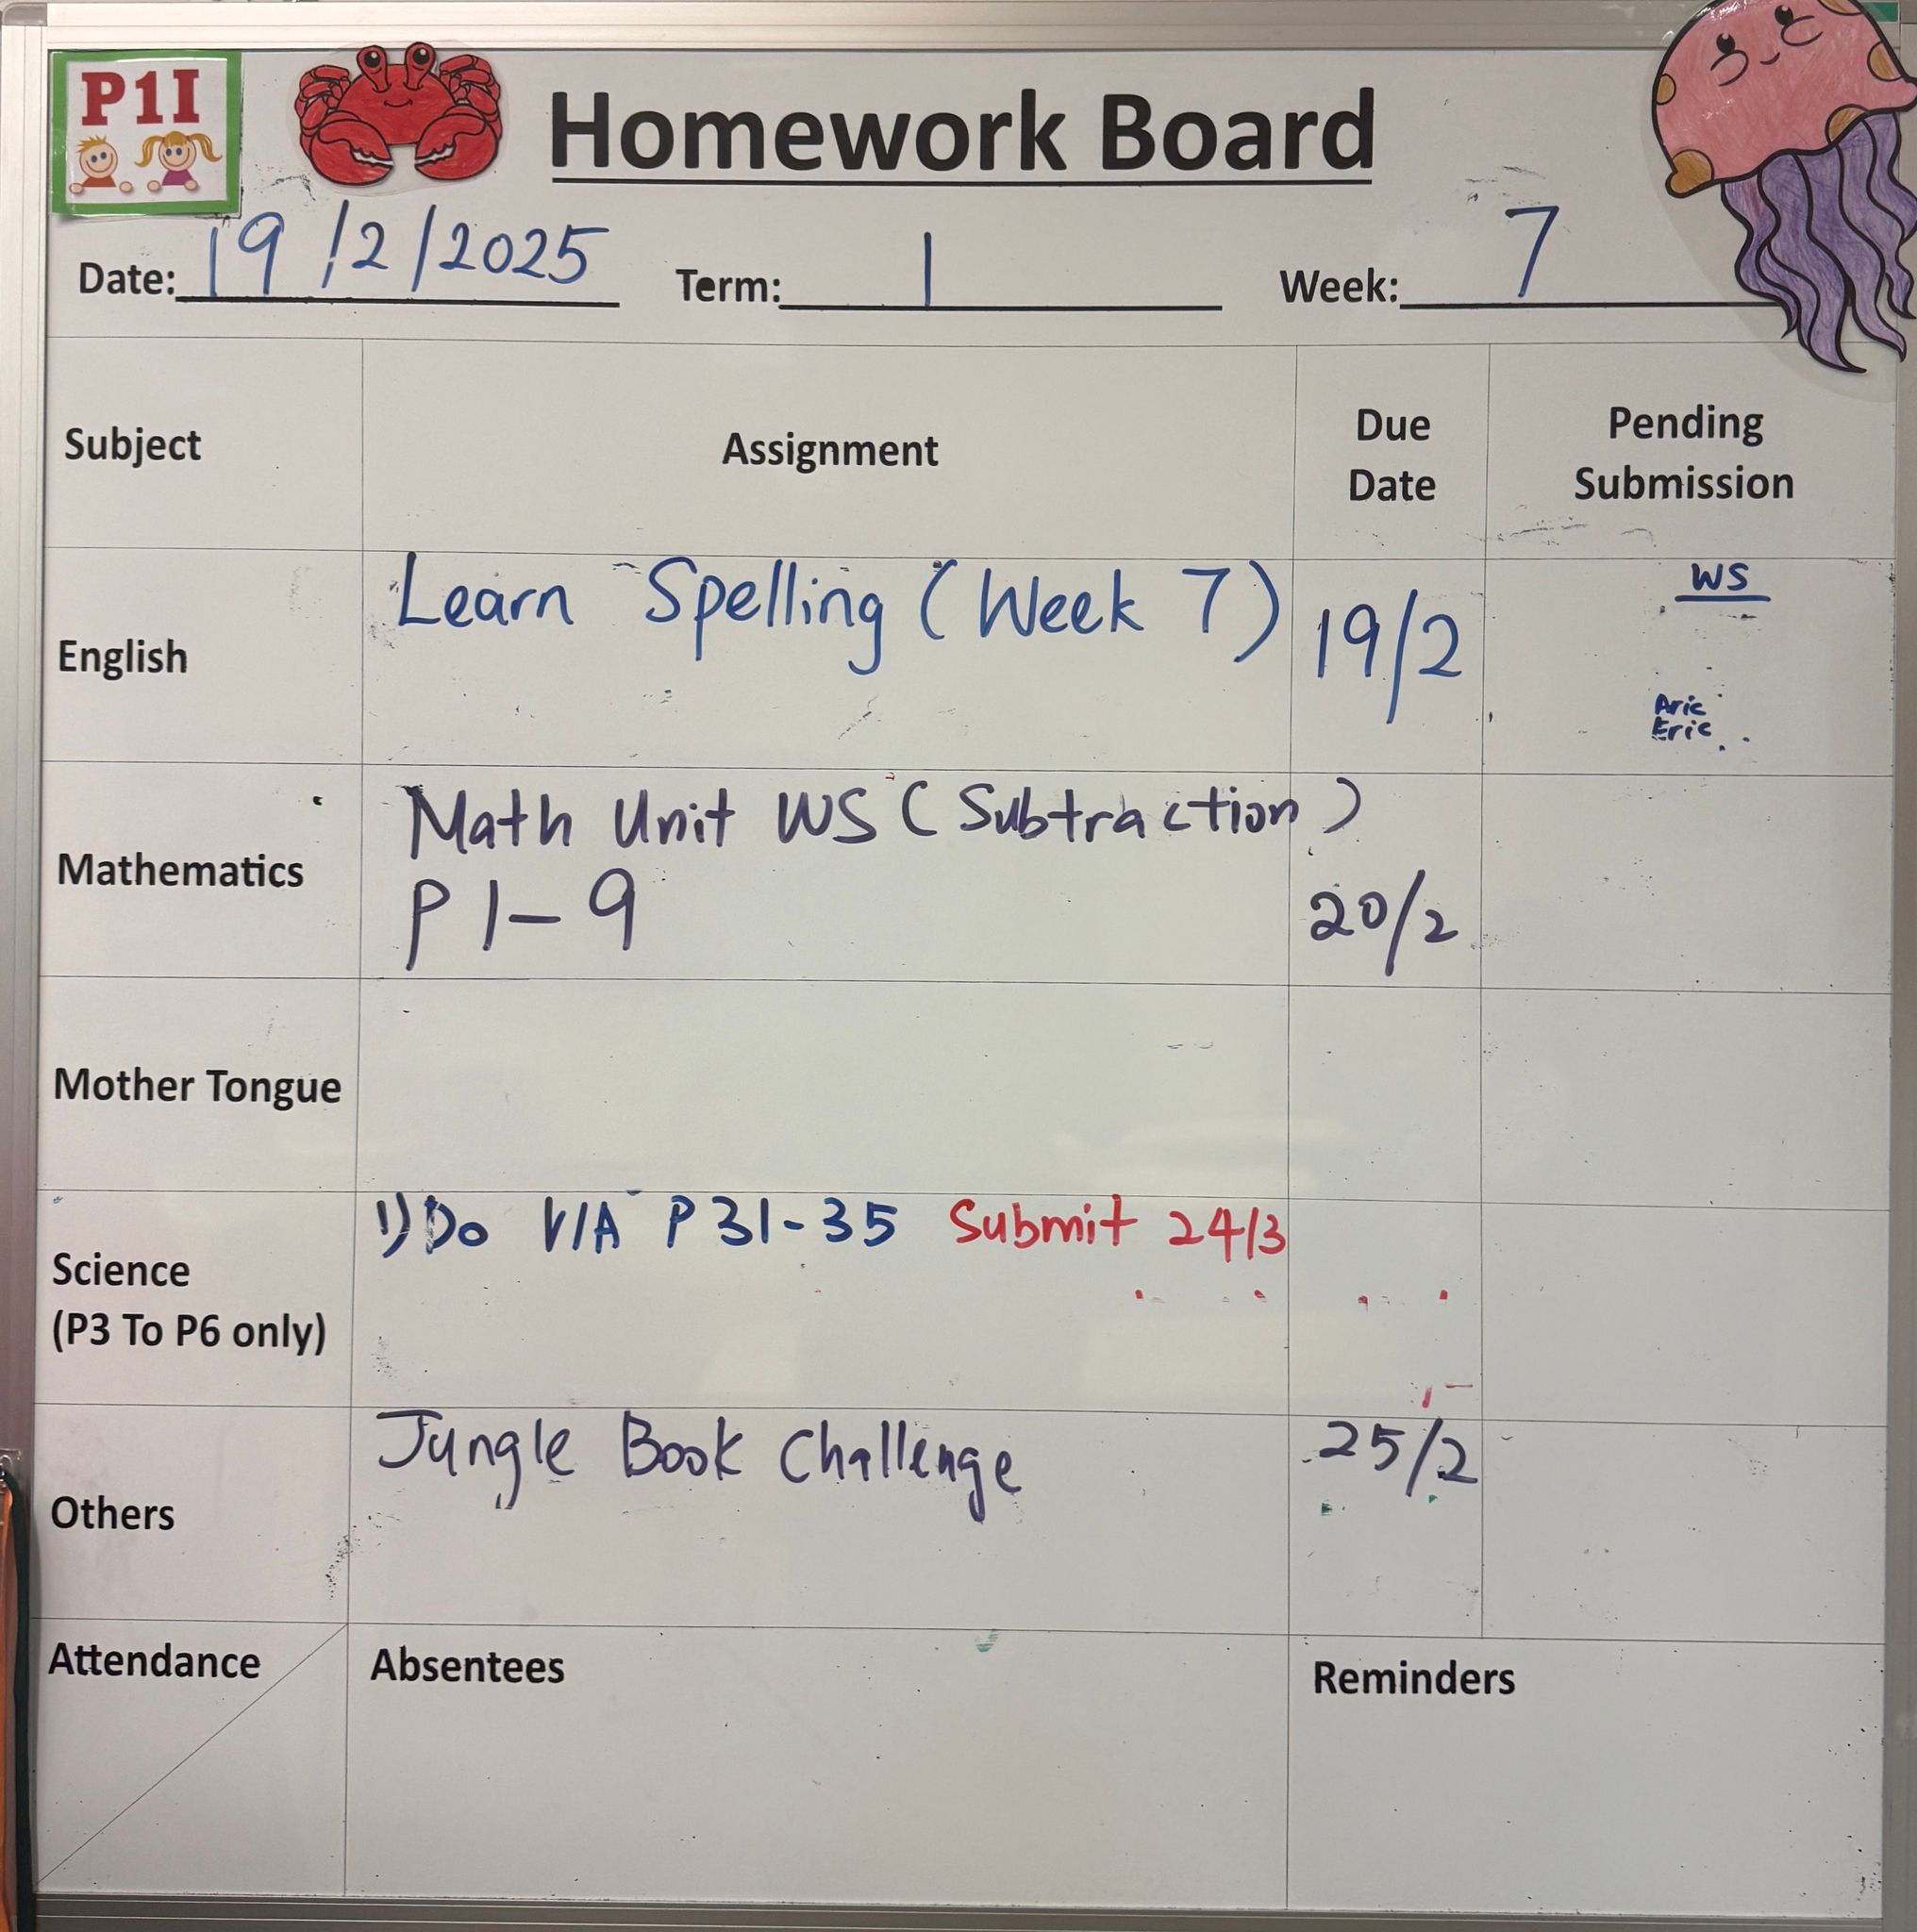 P1I
Homework Board
Date: 19/2/2025 Term: 1 Week: 7
Subject Assignment Due Date Pending Submission
English Learn Spelling (Week 7) 19/2 WS
Aric
Eric
Mathematics Math Unit WS (Subtraction)
P 1-9 20/2
Mother Tongue
Science
(P3 To P6 only)
1) Do V/A P 31-35 Submit 24/3
Others Jungle Book Challenge 25/2
Attendance Absentees Reminders